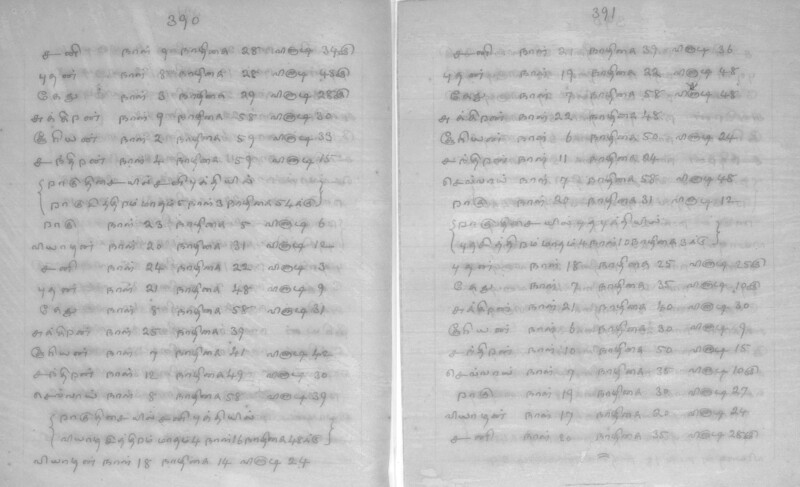 390
சனி நாள் 9 நாழிகை 28 விகுடி
புதன் நாள் 8 நாழிகை 28 விகுடி
கேது நாள் 3 நாழிகை 29 விகுடி
சுக்கிரன் நாள் 9 நாழிகை 58 விகுடி 30
சூரியன் நாள் 2 நாழிகை 59 விகுடி 33
சந்திரன் நாள் 4 நாழிகை 59 விகுடி 15
ராகு நாள் 23 நாழிகை 5 விகுடி 6
வியாழன் நாள் 20 நாழிகை 31 விகுடி 12
சனி நாள் 24 நாழிகை 22 விகுடி 3
புதன் நாள் 21 நாழிகை 48 விகுடி 9
கேது நாள் 8 நாழிகை 58 விகுடி 31
சுக்கிரன் நாள் 25 நாழிகை 39
சூரியன் நாள் 7 நாழிகை 41 விகுடி 42
சந்திரன் நாள் 12 நாழிகை 49 விகுடி 30
செவ்வாய் நாள் 8 நாழிகை 58 விகுடி 39
வியாழன் நாள் 18 நாழிகை 14 விகுடி 24
391
சனி நாள் 21 நாழிகை 39 விகுடி 36
புதன் நாள் 19 நாழிகை 22 விகுடி 48
கேது நாள் 7 நாழிகை 58 விகுடி 48
சுக்கிரன் நாள் 22 நாழிகை 48
சூரியன் நாள் 6 நாழிகை 50 விகுடி 24
சந்திரன் நாள் 11 நாழிகை 24
செவ்வாய் நாள் 7 நாழிகை 58 விகுடி 48
ராகு நாள் 20 நாழிகை 31 விகுடி 12
புதன் நாள் 18 நாழிகை 25 விகுடி
கேது நாள் 7 நாழிகை 35 விகுடி
சுக்கிரன் நாள் 21 நாழிகை 40 விகுடி 30
சூரியன் நாள் 6 நாழிகை 30 விகுடி 9
சந்திரன் நாள் 10 நாழிகை 50 விகுடி 15
செவ்வாய் நாள் 7 நாழிகை 35 விகுடி
ராகு நாள் 19 நாழிகை 30 விகுடி 27
வியாழன் நாள் 17 நாழிகை 20 விகுடி 24
சனி நாள் 20 நாழிகை 35 விகுடி